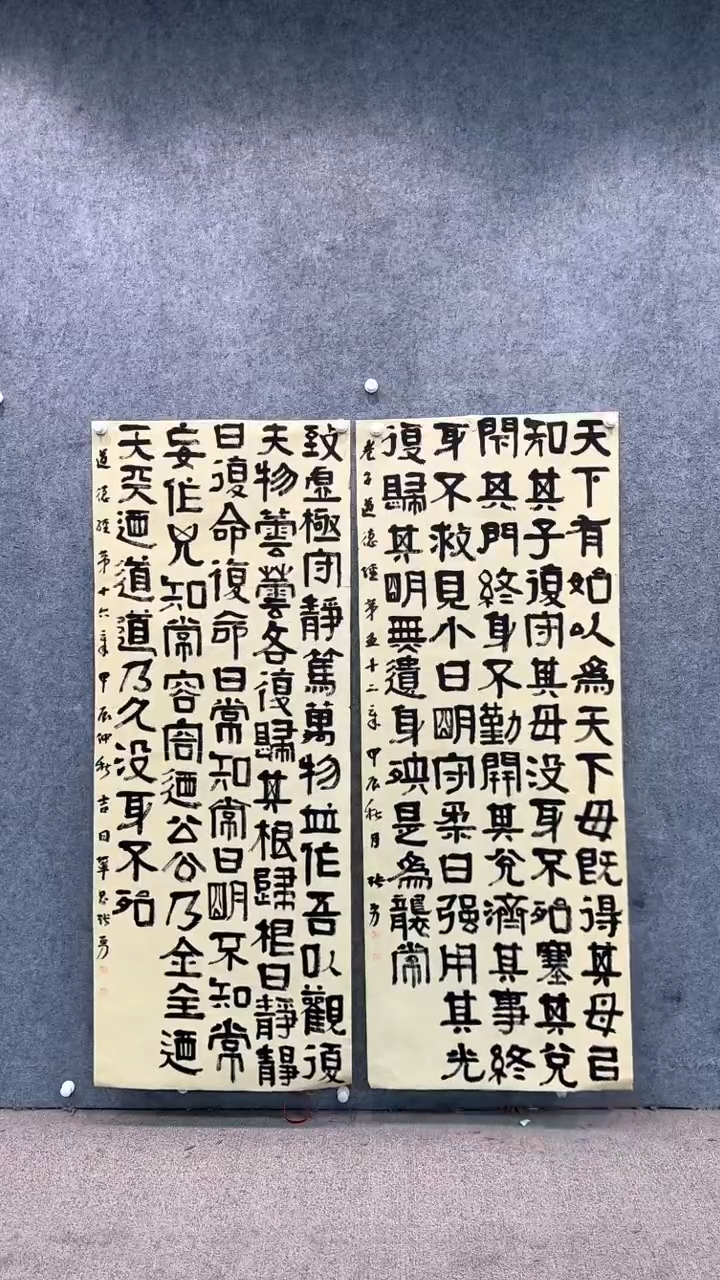 天下有始以為天下母既得其母已
知其子復守其母没身不殆塞其兌
閉其門終身不勤開其兌濟其事終
身不救見小曰明守柔曰强用其光
復歸其明無遺身殃是為襲常
老子道德經第五十二章 甲辰秋月 張勇
致虚極守静篤萬物並作吾以觀復
夫物蕓蕓各復歸其根歸根曰静静
曰復命復命曰常知常曰明不知常
妄作凶知常容容迺公公乃全全迺
天天迺道道乃久没身不殆
道德經第十六章 甲辰仲秋吉日 張勇